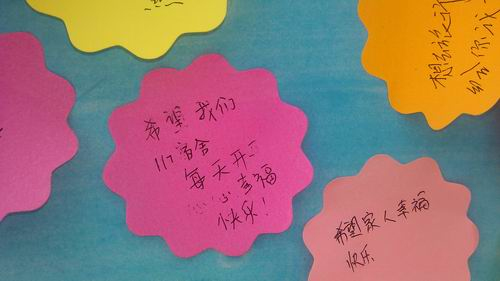 希望我们
117宿舍
每天开开
心心幸福
快乐!
希望家人幸福
快乐
想
给你